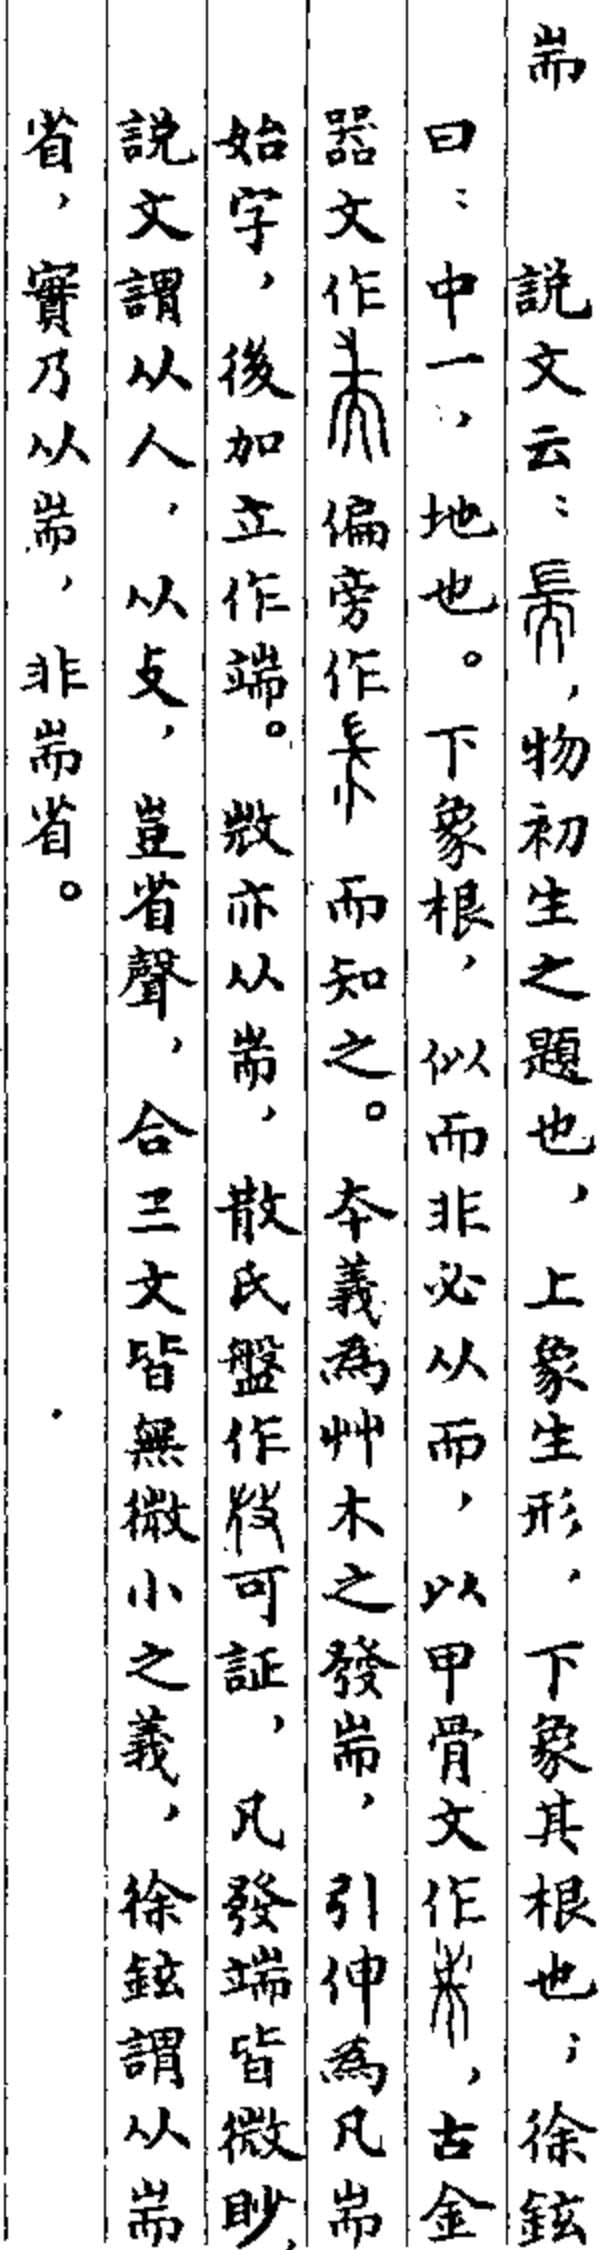 耑　説文云：，物初生之題也，上象生形，下象其根也；徐鉉
曰：中一，地也。下象根，似而非必从而，以甲骨文作，古金
器文作偏旁作而知之。本義為艸木之發耑，引伸為凡耑
始字，後加立作端。㪔亦从耑，散氏盤作可証，凡發端皆微眇，
説文謂从人，从攴，豈省聲，合三文皆無微小之義，徐鉉謂从耑
省，實乃从耑，非耑省。